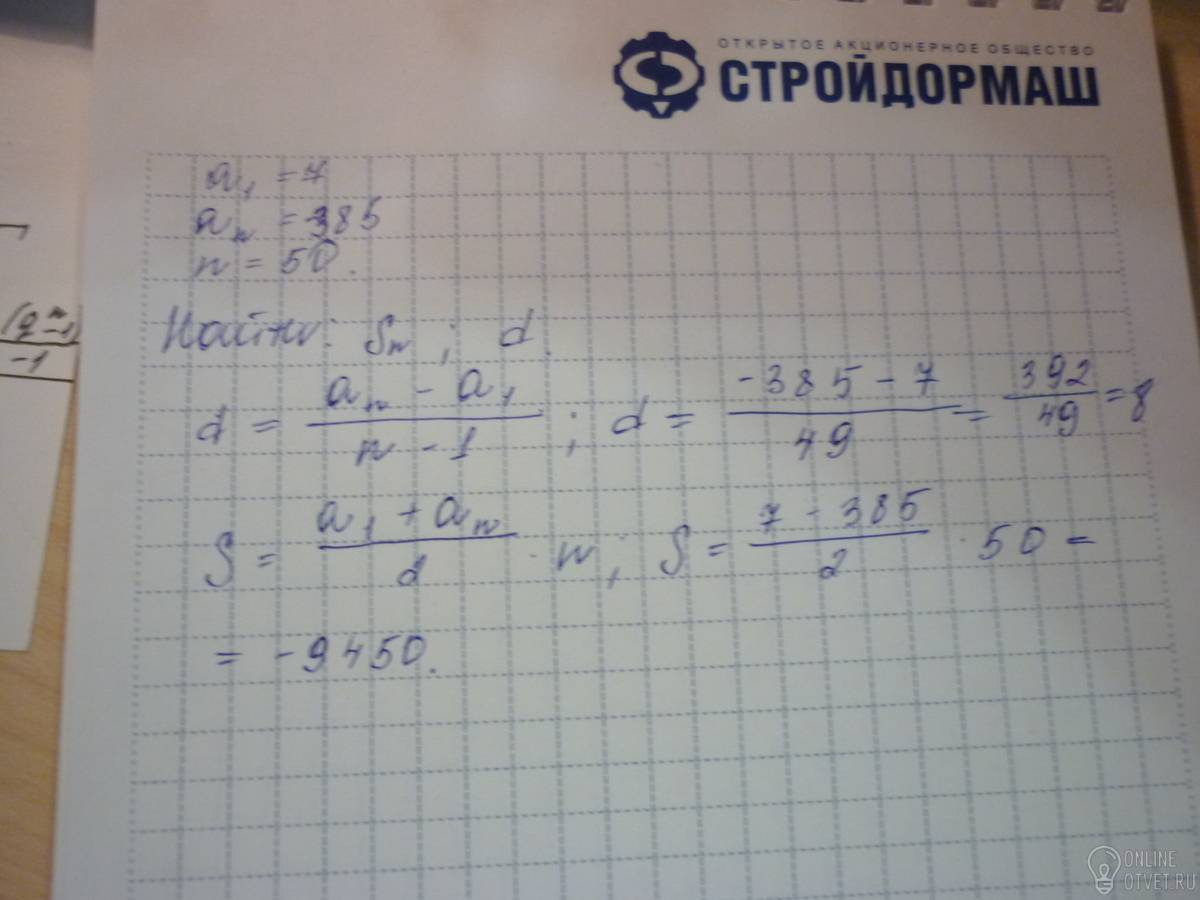 ОТКРЫТОЕ АКЦИОНЕРНОЕ ОБЩЕСТВО
СТРОЙДОРМАШ
a₁ = 7
aₙ = 385
n = 50.
Найти: Sₙ ; d
d = (aₙ - a₁)/(n - 1) ; d = (-385 - 7)/49 = 392/49 = 8
S = (a₁ + aₙ)/2 · n ; S = (7 - 385)/2 · 50 =
= -9450.
(qⁿ-1)
-1
ONLINE
OTVET.RU